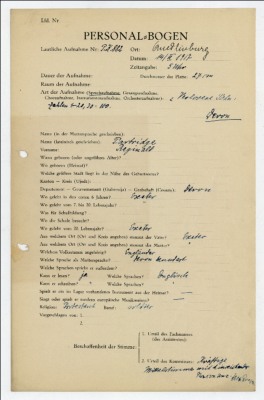 Lfd. Nr
PERSONAL-BOGEN
Lautliche Aufnahme Nr. PK 802 Ort:
Datum:
Zeitangabe: 5 Uhr
Dauer der Aufnahme: Durchmesser der Platte: 27 cm
Raum der Aufnahme:
Art der Aufnahme (Sprechaufnahme, Gesangsaufnahme,
Choraufnahme, Instrumentenaufnahme, Orchesteraufnahme):
Zahlen 1-20, 30-100.
Devon
Name (in der Muttersprache geschrieben):
Name (lateinisch geschrieben): Partridge
Vorname: Reginald
Wann geboren (oder ungefähres Alter)?
Wo geboren (Heimat)?
Welche größere Stadt liegt in der Nähe des Geburtsortes?
Kanton — Kreis (Ujezd):
Departement — Gouvernement (Gubernija) — Grafschaft (County): Devon
Wo gelebt in den ersten 6 Jahren? Exeter
Wo gelebt vom 7. bis 20. Lebensjahr?
Was für Schulbildung?
Wo die Schule besucht?
Wo gelebt vom 20. Lebensjahr? Exeter
Aus welchem Ort (Ort und Kreis angeben) stammt der Vater? Exeter
Aus welchem Ort (Ort und Kreis angeben) stammt die Mutter?
Welchem Volksstamm angehörig? Engländer
Welche Sprache als Muttersprache? Devon
Welche Sprachen spricht er außerdem?
Kann er lesen? ja Welche Sprachen? Englisch
Kann er schreiben? Welche Sprachen?
Spielt er ein im Lager vorhandenes Instrument aus der Heimat?
Singt oder spielt er moderne europäische Musikweisen?
Religion: Beruf:
Vorgeschlagen von: 1.
2.
Beschaffenheit der Stimme:
1. Urteil des Fachmannes
(des Assistenten):
2. Urteil des Kommissars: Kräftige
mit